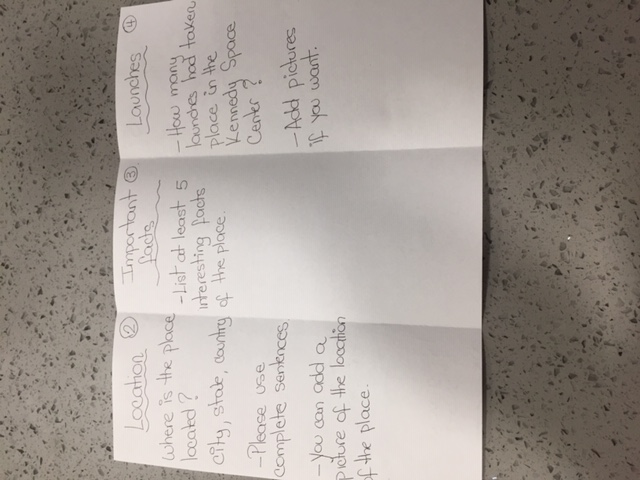 Location ②
Where is the place
located?
City, state, country
-Please use
complete sentences.
-You can add a
picture of the location
of the place.
Important ③
facts
-List at least 5
interesting facts
of the place.
Launches ④
-How many
launches had taken
place in the
Kennedy Space
Center?
-Add pictures
if you want.